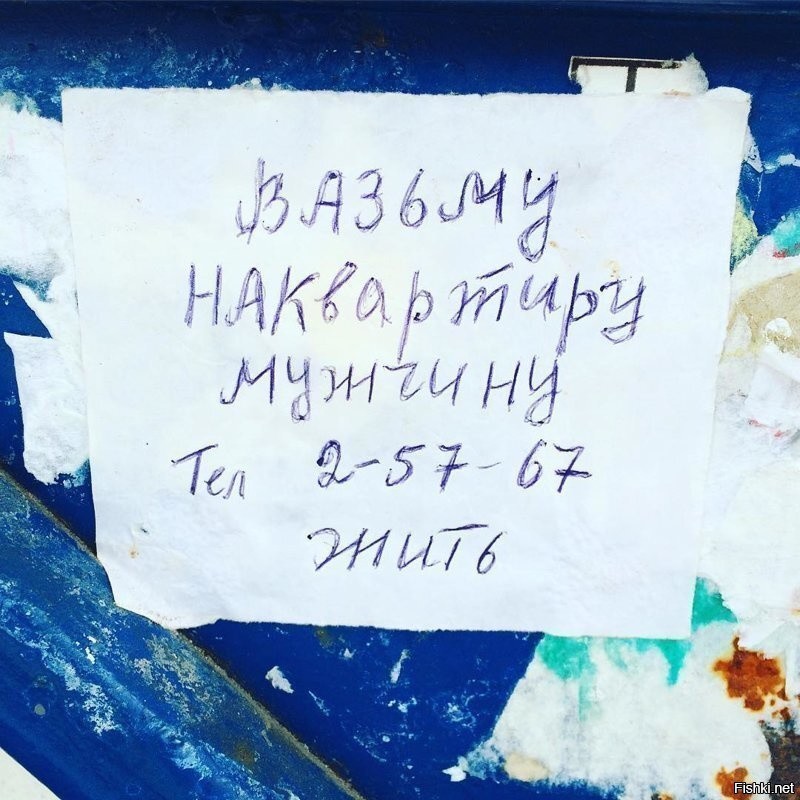 Т
ВАЗЬМУ
НАКвартиру
мужчину
Тел 2-57-67
жить
Fishki.net